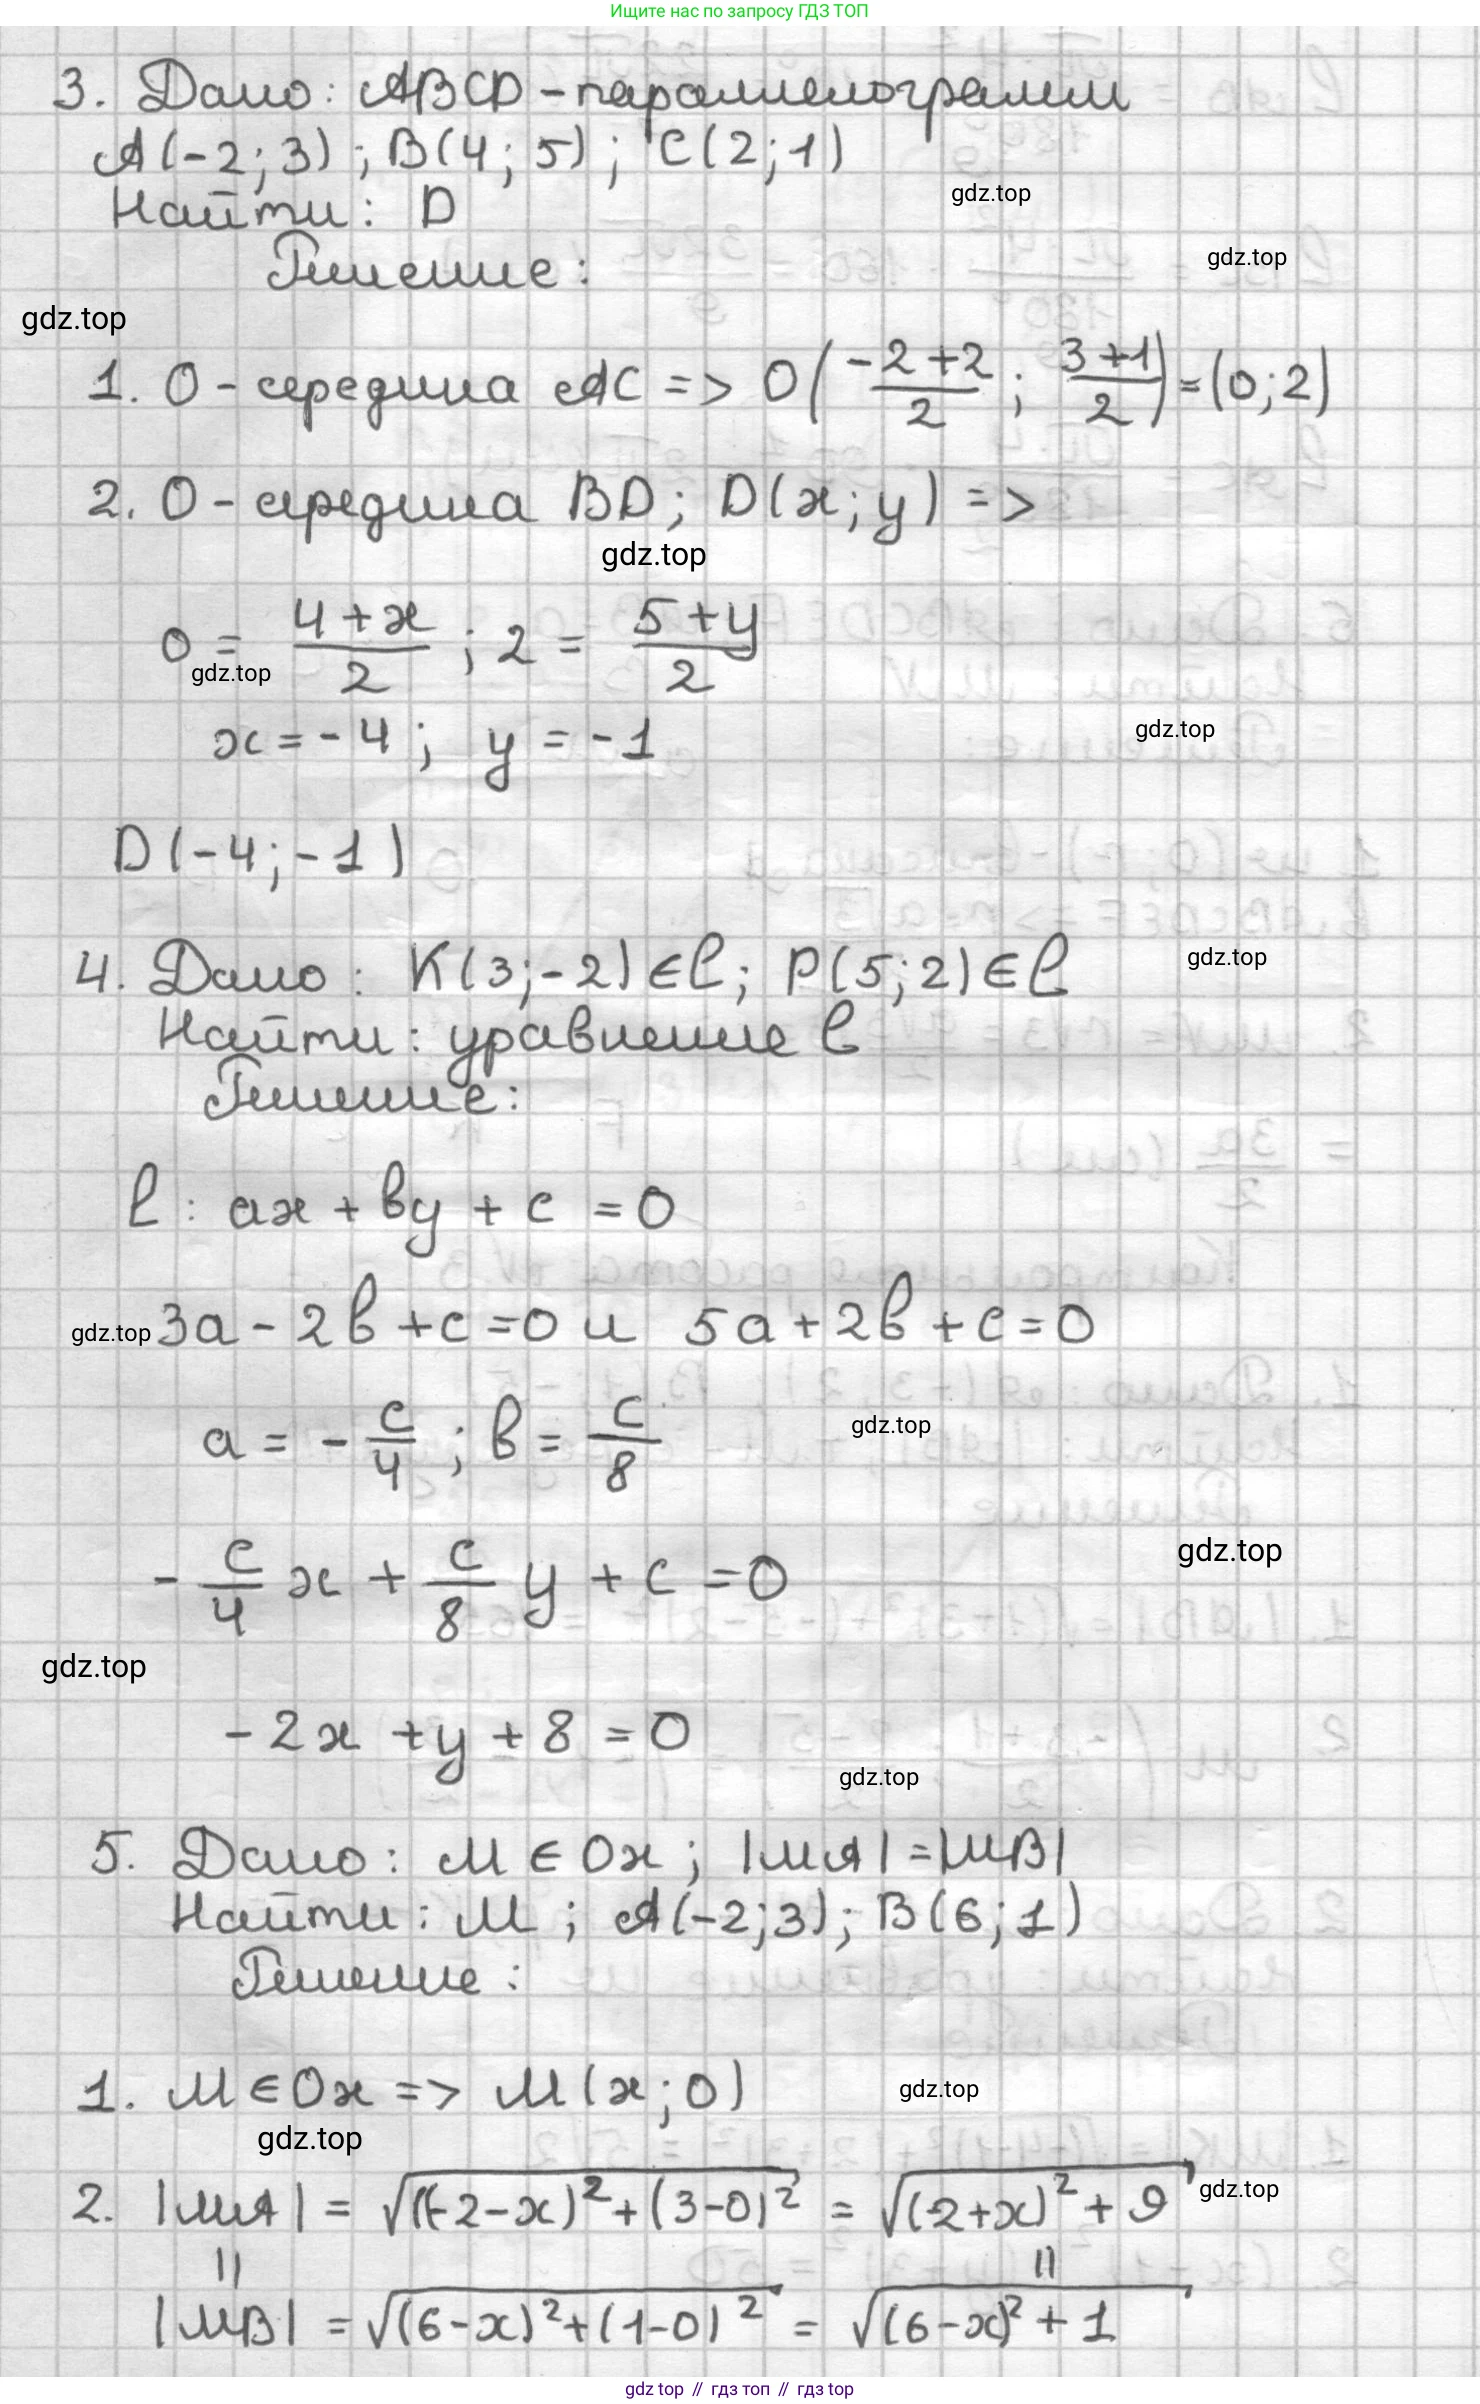 Ищите нас по запросу ГДЗ ТОП
3. Дано: ABCD - параллелограмм
A(-2; 3); B(4; 5); C(2; 1)
gdz.top
Найти: D
Решение:
gdz.top
gdz.top
1. O - середина AC => O((-2+2)/2; (3+1)/2) = (0; 2)
2. O - середина BD; D(x; y) =>
gdz.top
0 = (4+x)/2; 2 = (5+y)/2
gdz.top
x = -4; y = -1
gdz.top
D(-4; -1)
4. Дано: K(3; -2) ∈ l; P(5; 2) ∈ l
gdz.top
Найти: уравнение l
Решение:
l: ax + by + c = 0
gdz.top
3a - 2b + c = 0 и 5a + 2b + c = 0
a = -c/4; b = c/8
gdz.top
gdz.top
-c/4 x + c/8 y + c = 0
gdz.top
-2x + y + 8 = 0
gdz.top
5. Дано: M ∈ Ox; |MA| = |MB|
Найти: M; A(-2; 3); B(6; 1)
Решение:
1. M ∈ Ox => M(x; 0)
gdz.top
gdz.top
2. |MA| = √((-2-x)² + (3-0)²) = √((-2+x)² + 9)
gdz.top
|| ||
|MB| = √((6-x)² + (1-0)²) = √((6-x)² + 1)
gdz top // гдз топ // гдз top